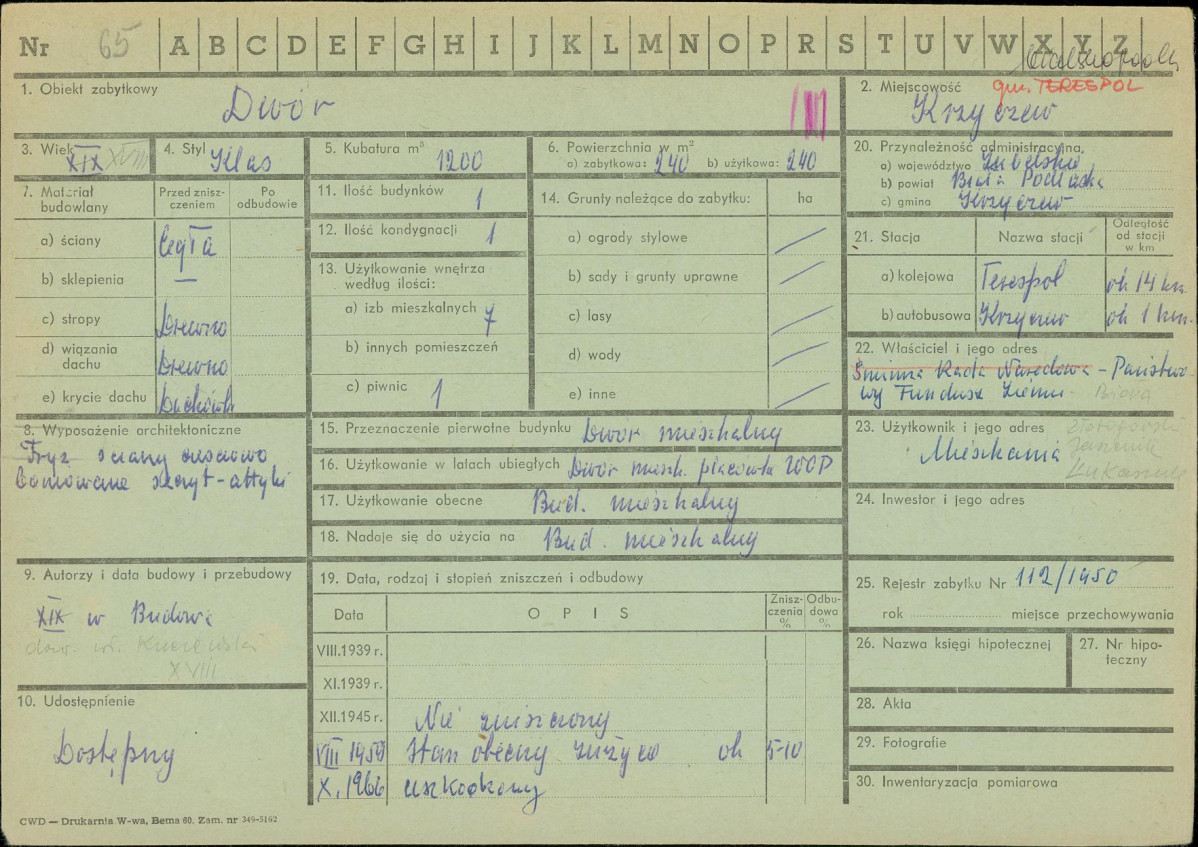 Nr 65 A B C D E F G H I J K L M N O P R S T U V W X Y Z
1. Obiekt zabytkowy
Dwór
2. Miejscowość
gm. TERESPOL
Krzyczew
3. Wiek
XIX XVIII
4. Styl Klas
5. Kubatura m³
1200
6. Powierzchnia w m²
a) zabytkowa: 240 b) użytkowa: 240
20. Przynależność administracyjna
a) województwo Lubelskie
b) powiat Biała Podlaska
c) gmina Krzyczew
7. Materiał budowlany
Przed zniszczeniem
Po odbudowie
a) ściany cegła
b) sklepienia —
c) stropy Drewno
d) wiązania dachu Drewno
e) krycie dachu Dachówka
11. Ilość budynków 1
12. Ilość kondygnacji 1
13. Użytkowanie wnętrza
według ilości:
a) izb mieszkalnych 7
b) innych pomieszczeń
c) piwnic 1
14. Grunty należące do zabytku: ha
a) ogrody stylowe
b) sady i grunty uprawne
c) lasy
d) wody
e) inne
21. Stacja
Nazwa stacji
Odległość od stacji w km
a) kolejowa Terespol ok 14 km.
b) autobusowa Krzyczew ok 1 km.
22. Właściciel i jego adres
Gminna Rada Narodowa - Państwo-
wy Fundusz Ziemi -
8. Wyposażenie architektoniczne
Fryz ściany
boniowane szczyt-attyki
15. Przeznaczenie pierwotne budynku Dwór mieszkalny
16. Użytkowanie w latach ubiegłych Dwór mieszk. placówka WOP
17. Użytkowanie obecne Bud. mieszkalny
18. Nadaje się do użycia na Bud. mieszkalny
23. Użytkownik i jego adres
Mieszkania
24. Inwestor i jego adres
9. Autorzy i data budowy i przebudowy
XIX w Budowa
XVIII
19. Data, rodzaj i stopień zniszczeń i odbudowy
Data OPIS Zniszczenia % Odbudowa %
VIII.1939 r.
XI.1939 r.
XII.1945 r. Nie zniszczony
VIII 1959 Stan obecny zużycia ok 5-10
X. 1966 uszkodzony
25. Rejestr zabytku Nr 112/1950
rok miejsce przechowywania
26. Nazwa księgi hipotecznej
27. Nr hipoteczny
28. Akta
29. Fotografie
30. Inwentaryzacja pomiarowa
10. Udostępnienie
Dostępny
CWD — Drukarnia W-wa, Bema 60. Zam. nr 349-5162